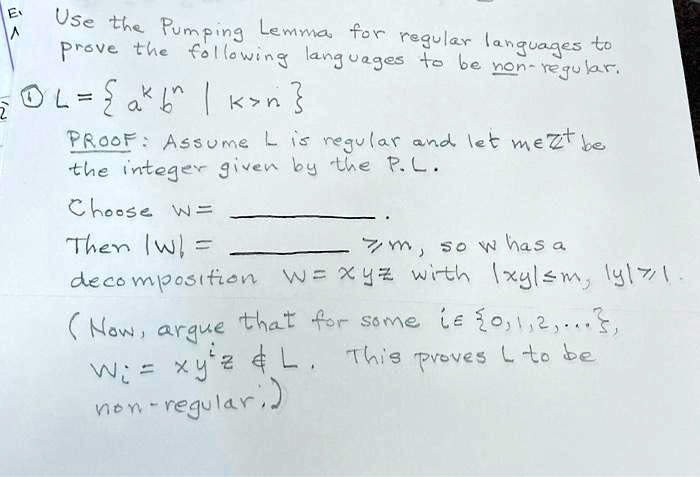 E
Use the Pumping Lemma for regular languages to
prove the following languages to be non-regular.
① L = { aᵏ bⁿ | k>n }
PROOF: Assume L is regular and let m∈Z⁺ be
the integer given by the P.L.
Choose w = ________.
Then |w| = ________ ≥m, so w has a
decomposition w = xyz with |xy|≤m, |y|≥1.
(Now, argue that for some i∈{0,1,2,...},
wᵢ = xyⁱz ∉ L. This proves L to be
non-regular.)